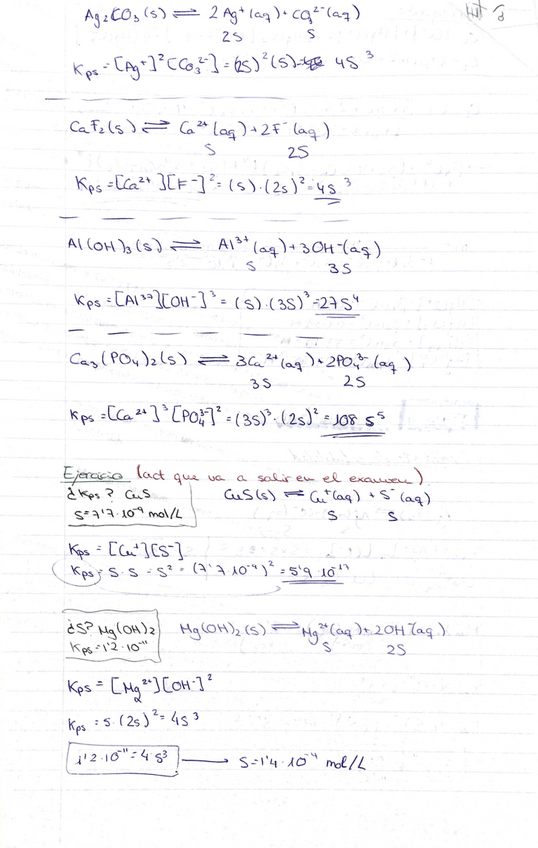 Ag₂CO₃(s) ⇌ 2Ag⁺(aq) + CO₃²⁻(aq)
2S S
Kps = [Ag⁺]²[CO₃²⁻] = (2S)²(S) 4S³
CaF₂(s) ⇌ Ca²⁺(aq) + 2F⁻(aq)
S 2S
Kps = [Ca²⁺][F⁻]² = (s)·(2s)² = 4S³
Al(OH)₃(s) ⇌ Al³⁺(aq) + 3OH⁻(aq)
S 3S
Kps = [Al³⁺][OH⁻]³ = (s)·(3S)³ = 27S⁴
Ca₃(PO₄)₂(s) ⇌ 3Ca²⁺(aq) + 2PO₄³⁻(aq)
3S 2S
Kps = [Ca²⁺]³[PO₄³⁻]² = (3S)³·(2s)² = 108 S⁵
Ejercicio (act que va a salir en el examen).
¿Kps? CuS CuS(s) ⇌ Cu⁺(aq) + S⁻(aq)
S = 7'7·10⁻⁹ mol/L S S
Kps = [Cu⁺][S⁻]
Kps = S·S = S² = (7'7·10⁻⁹)² = 5'9·10⁻¹⁷
¿S? Mg(OH)₂ Mg(OH)₂(s) ⇌ Mg²⁺(aq) + 2OH⁻(aq)
Kps = 1'2·10⁻¹¹ S 2S
Kps = [Mg²⁺][OH⁻]²
Kps = s·(2s)² = 4s³
1'2·10⁻¹¹ = 4·S³ → S = 1'4·10⁻⁴ mol/L